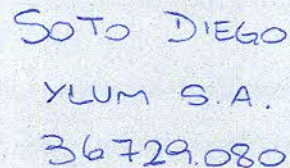 SOTO DIEGO
YLUM S.A.
36729.080